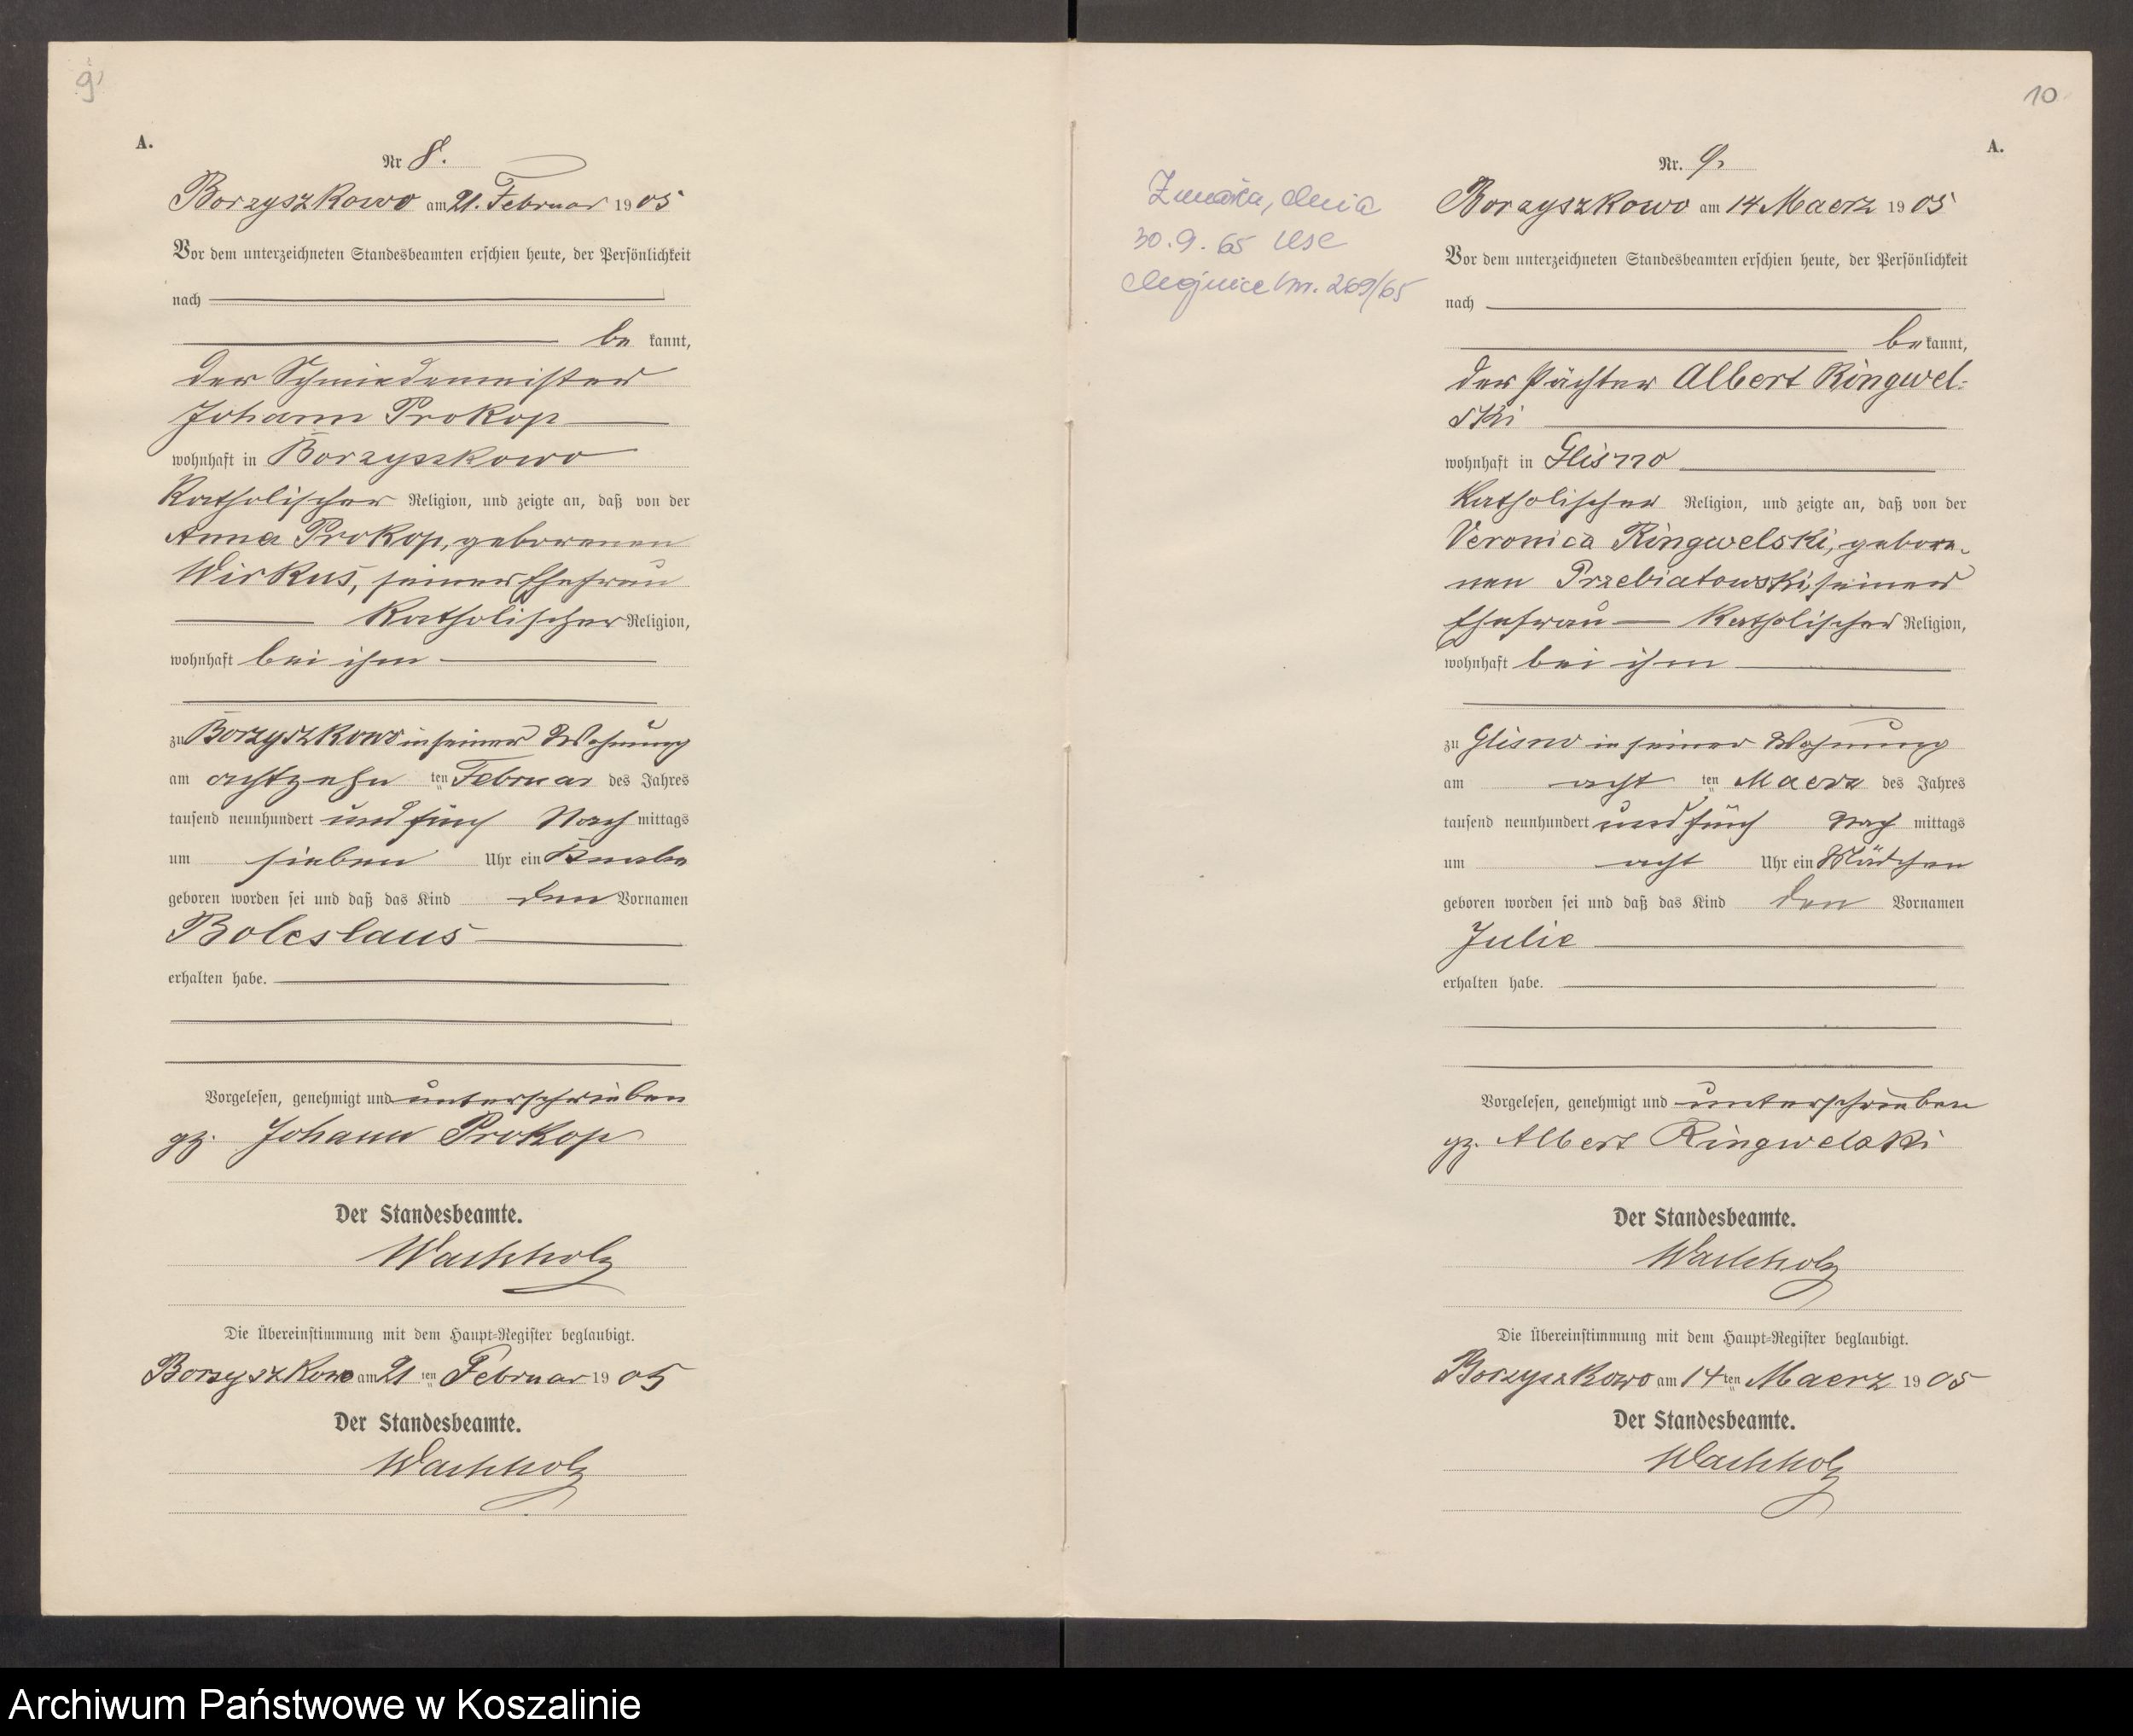 9
A.
Nr 8.
Borzyszkowo am 21. Februar 1905
Vor dem unterzeichneten Standesbeamten erschien heute, der Persönlichkeit
nach
be kannt,
der Schmiedemeister
Johann Prokop
wohnhaft in Borzyszkowo
Katholischer Religion, und zeigte an, daß von der
Anna Prokop, geborenen
Wirkus, seiner Ehefrau
Katholischer Religion,
wohnhaft bei ihm
zu Borzyszkowo in seiner Wohnung
am achtzehn ten Februar des Jahres
tausend neunhundert und fünf Nach mittags
um sieben Uhr ein Knabe
geboren worden sei und daß das Kind den Vornamen
Boleslaus
erhalten habe.
Vorgelesen, genehmigt und unterschrieben
gz. Johann Prokop
Der Standesbeamte.
Wachholz
Die Übereinstimmung mit dem Haupt-Register beglaubigt.
Borzyszkowo am 21 ten Februar 1905
Der Standesbeamte.
Wachholz
10
A.
Nr. 9.
30.9.65 USC
nr. 269/65
Borzyszkowo am 14 Maerz 1905
Vor dem unterzeichneten Standesbeamten erschien heute, der Persönlichkeit
nach
be kannt,
der Pächter Albert Ringwel-
ski
wohnhaft in Glisno
Katholischer Religion, und zeigte an, daß von der
Veronica Ringwelski, gebore-
nen Przebiatowski, seiner
Ehefrau Katholischer Religion,
wohnhaft bei ihm
zu Glisno in seiner Wohnung
am acht ten Maerz des Jahres
tausend neunhundert und fünf Nach mittags
um acht Uhr ein Mädchen
geboren worden sei und daß das Kind den Vornamen
Julie
erhalten habe.
Vorgelesen, genehmigt und unterschrieben
gz. Albert Ringwelski
Der Standesbeamte.
Wachholz
Die Übereinstimmung mit dem Haupt-Register beglaubigt.
Borzyszkowo am 14 ten Maerz 1905
Der Standesbeamte.
Wachholz
Archiwum Państwowe w Koszalinie